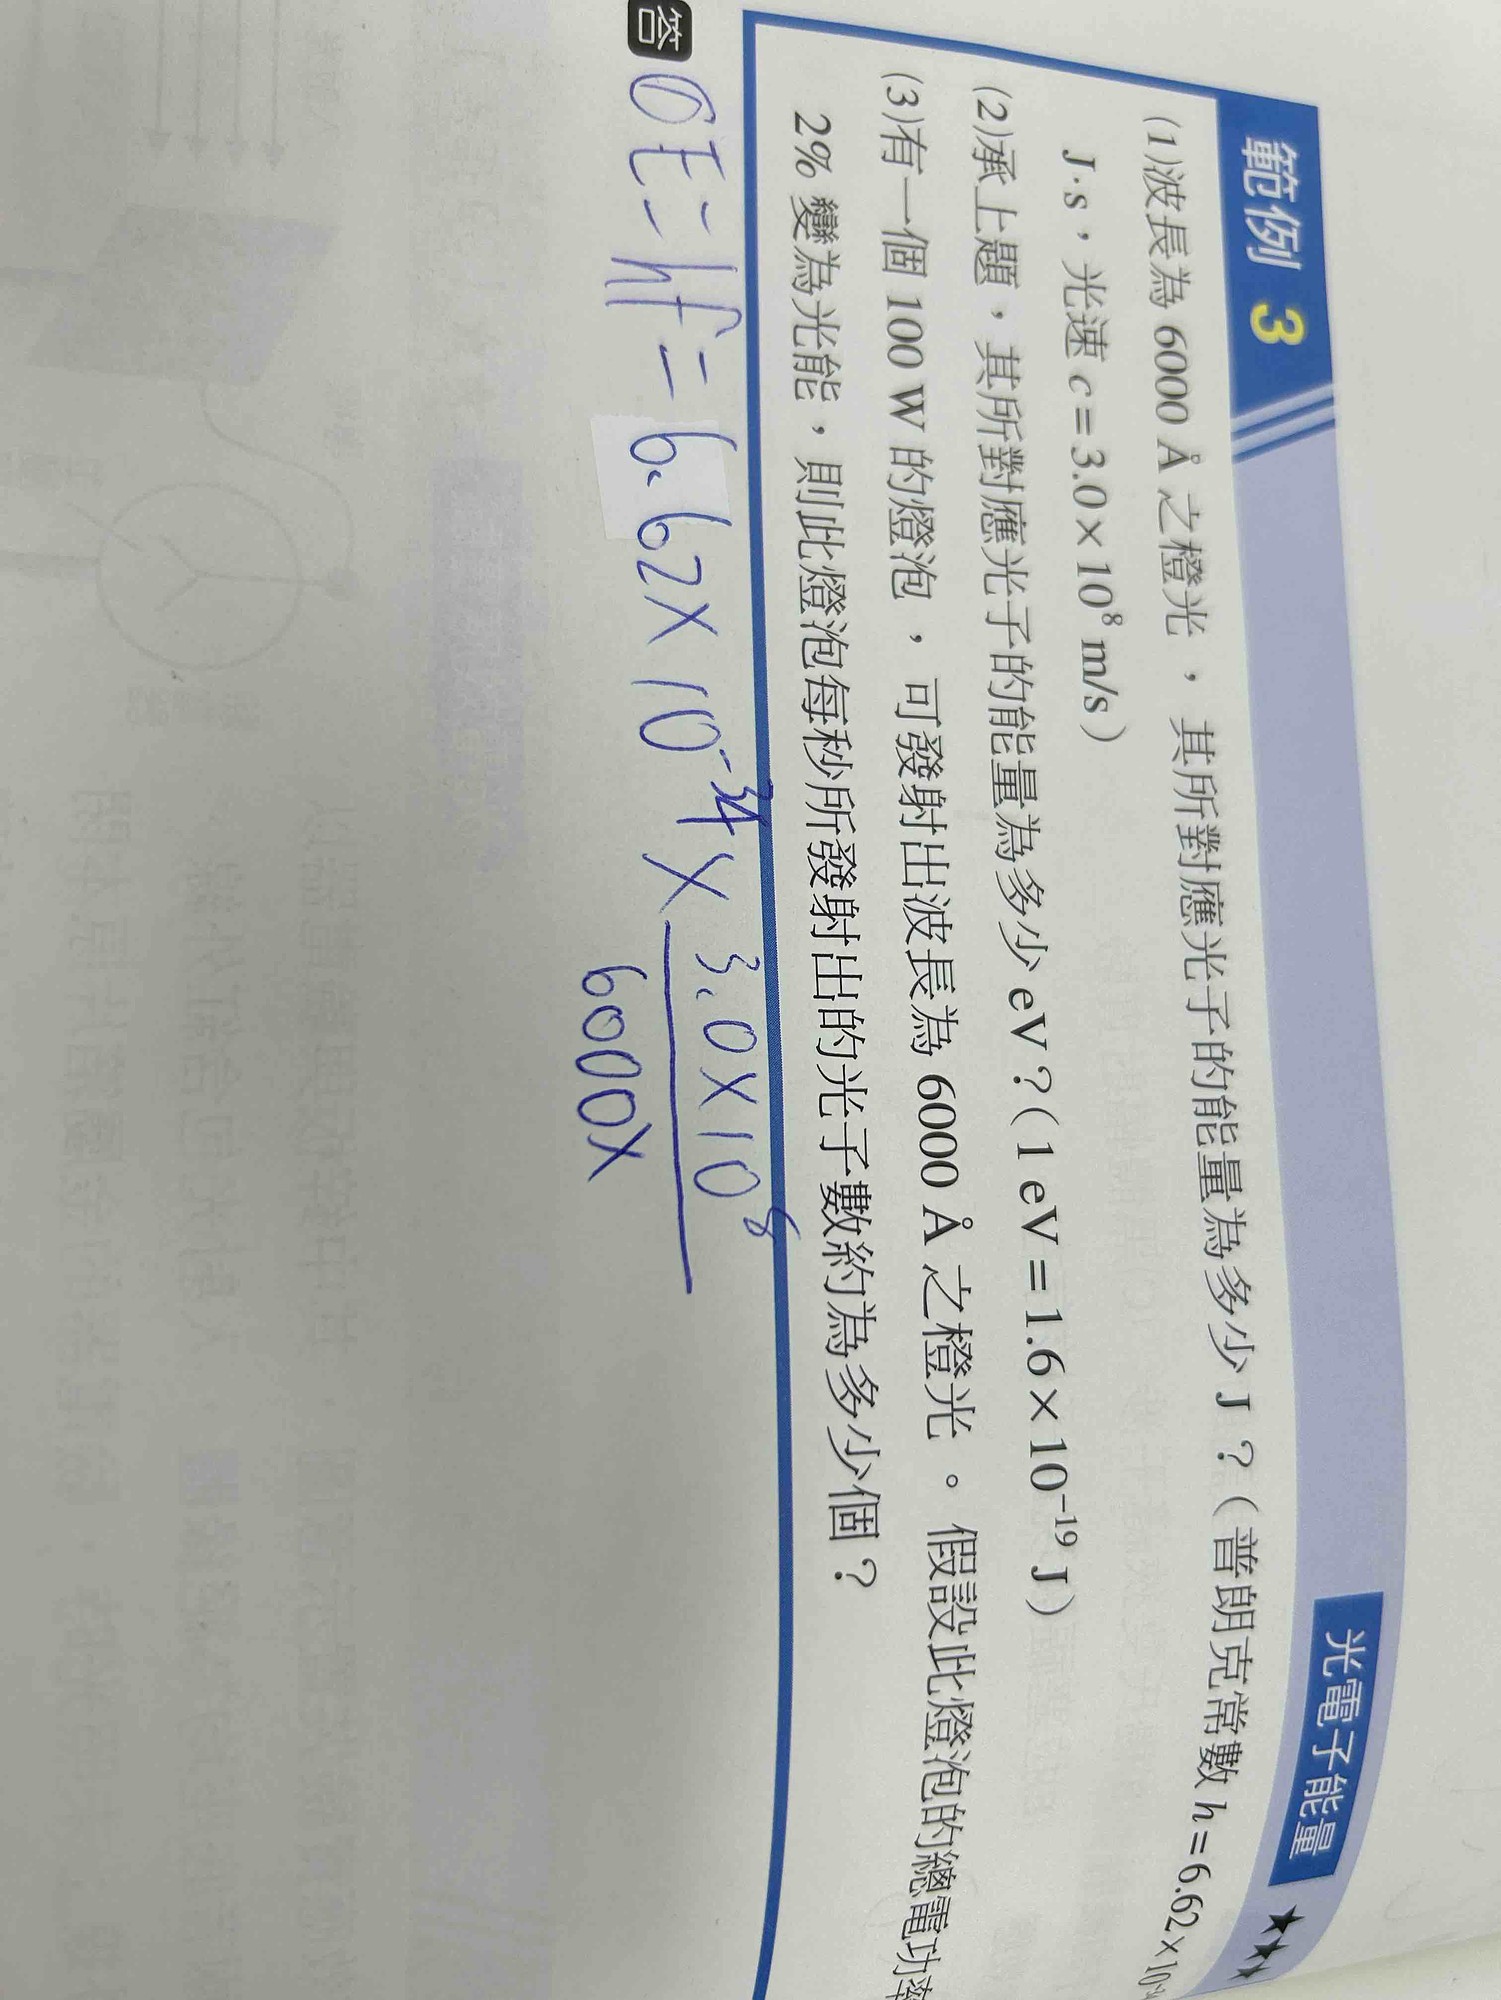 範例 3
光電子能量 ★★★
(1)波長為 6000 Å 之橙光，其所對應光子的能量為多少 J？(普朗克常數 h=6.62×10⁻³⁴
J·s，光速 c=3.0×10⁸ m/s)
(2)承上題，其所對應光子的能量為多少 eV？(1 eV=1.6×10⁻¹⁹ J)
(3)有一個 100 W 的燈泡，可發射出波長為 6000 Å 之橙光。假設此燈泡的總電功率
2% 變為光能，則此燈泡每秒所發射出的光子數約為多少個？
答 E=hf=6.62×10⁻³⁴× 3.0×10⁸
6000×